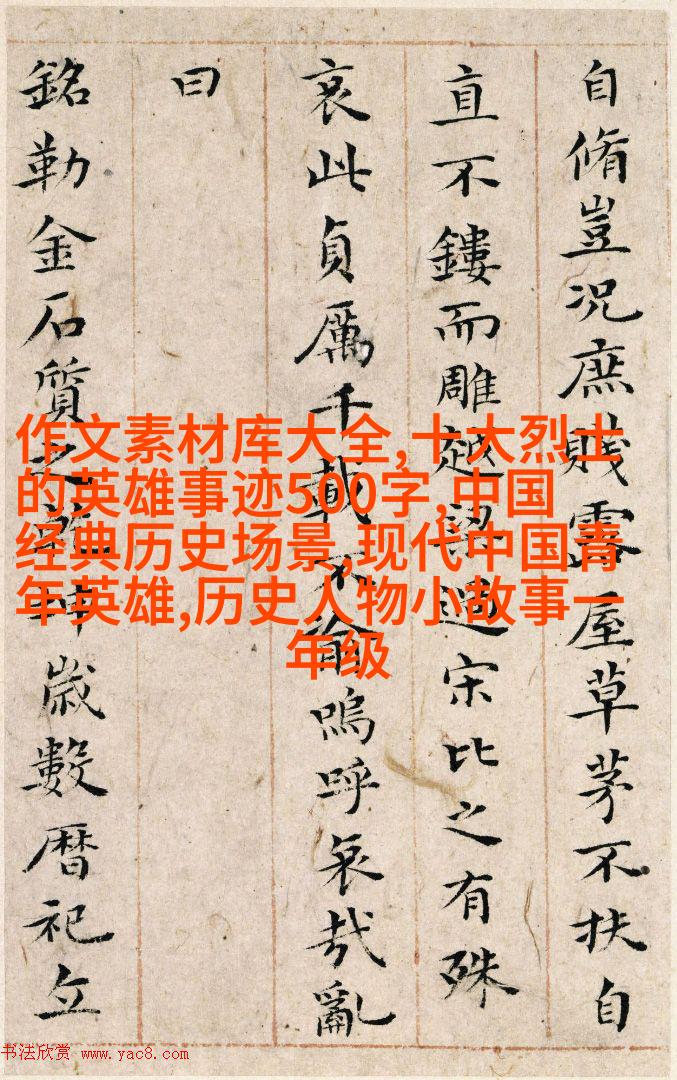 自脩豈況庶賤露屋草茅不扶自
直不鏤而雕越梁過宋比之有殊
哀此貞厲千載不渝嗚呼哀哉亂
曰
銘勒金石質之乾坤歲數曆祀立
作文素材库大全,十大烈士
的英雄事迹500字,中国
经典历史场景,现代中国青
年英雄,历史人物小故事一
年级
书法欣赏 www.yac8.com